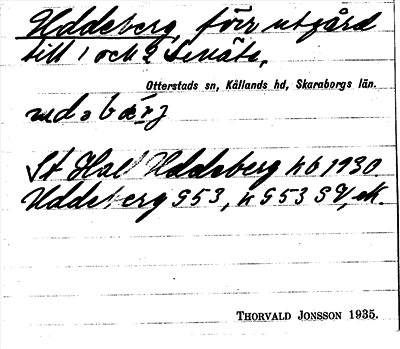 Uddeberg, förr utgård
till 1 och 2 Senäte,
Otterstads sn, Kållands hd, Skaraborgs län.
St. Hall Uddeberg h 6 1930
Uddeberg G53, h G53 SV, ek.
THORVALD JONSSON 1935.